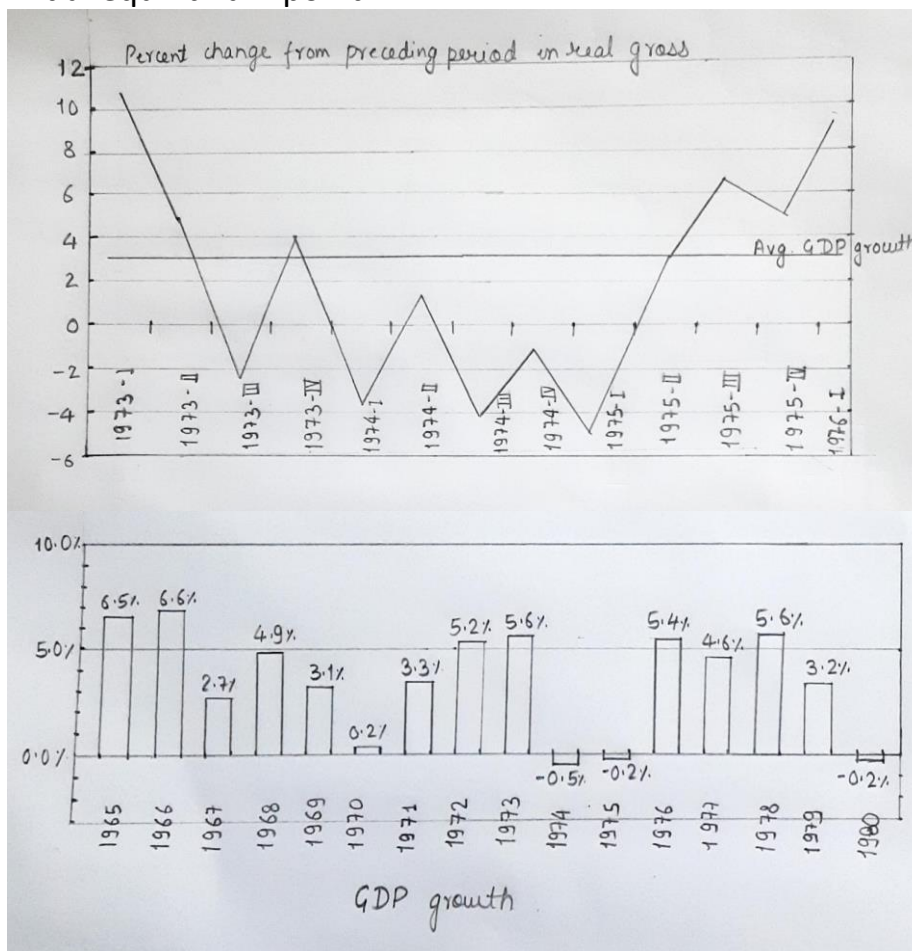 Percent change from preceding period in real gross
12
10
8
6
4
2
0
-2
-4
-6
Avg. GDP growth
1973-I
1973-II
1973-III
1973-IV
1974-I
1974-II
1974-III
1974-IV
1975-I
1975-II
1975-III
1975-IV
1976-I
10.0%
5.0%
0.0%
6.5%
6.6%
2.7%
4.9%
3.1%
0.2%
3.3%
5.2%
5.6%
-0.5%
-0.2%
5.4%
4.6%
5.6%
3.2%
-0.2%
1965
1966
1967
1968
1969
1970
1971
1972
1973
1974
1975
1976
1977
1978
1979
1980
GDP growth